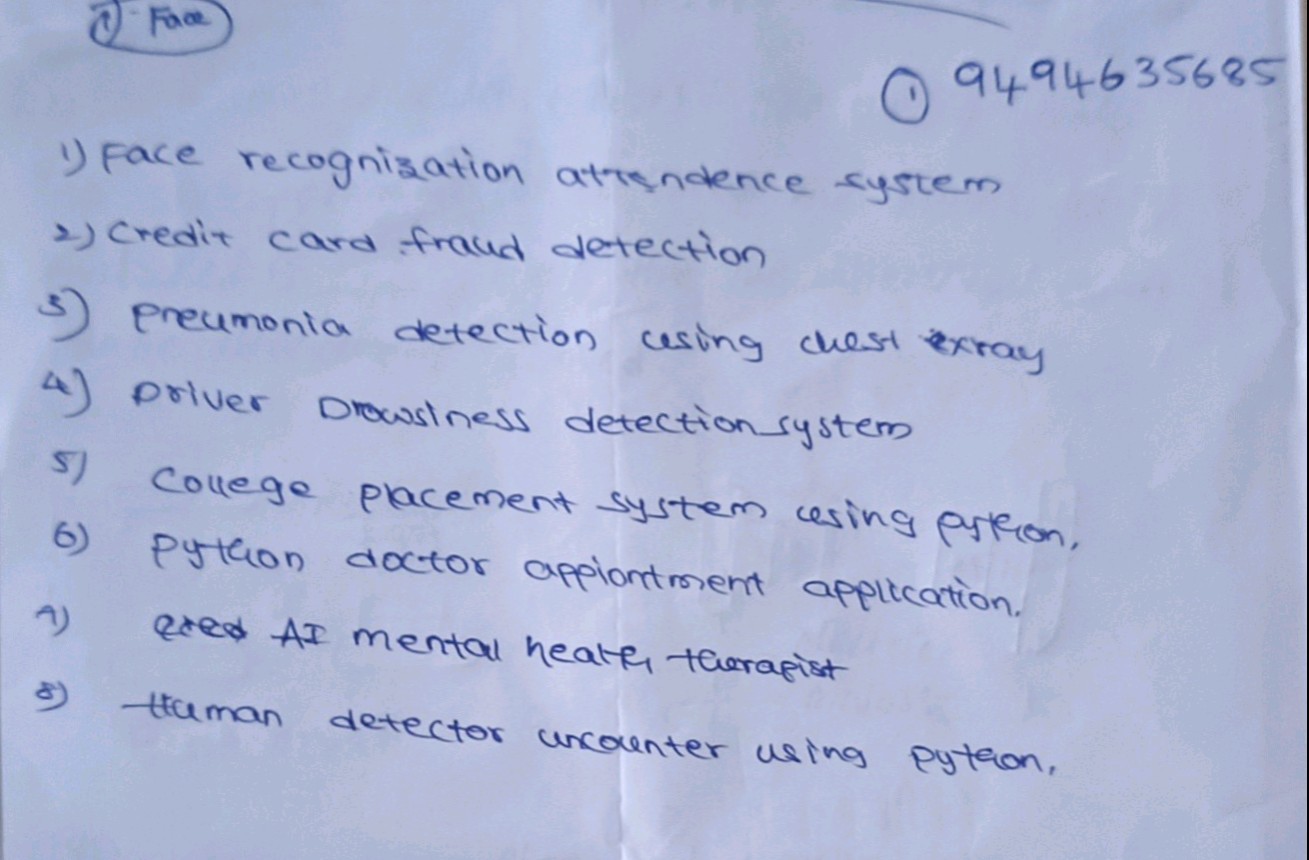 ① Face
① 9494635685
1) Face recognization attendence system
2) Credit card fraud detection
3) preumonia detection using chest exray
4) Driver Drowsiness detection system
5) College placement system using python.
6) python doctor appiontment application.
7) AI mental health therapist
8) Human detector uncounter using python.